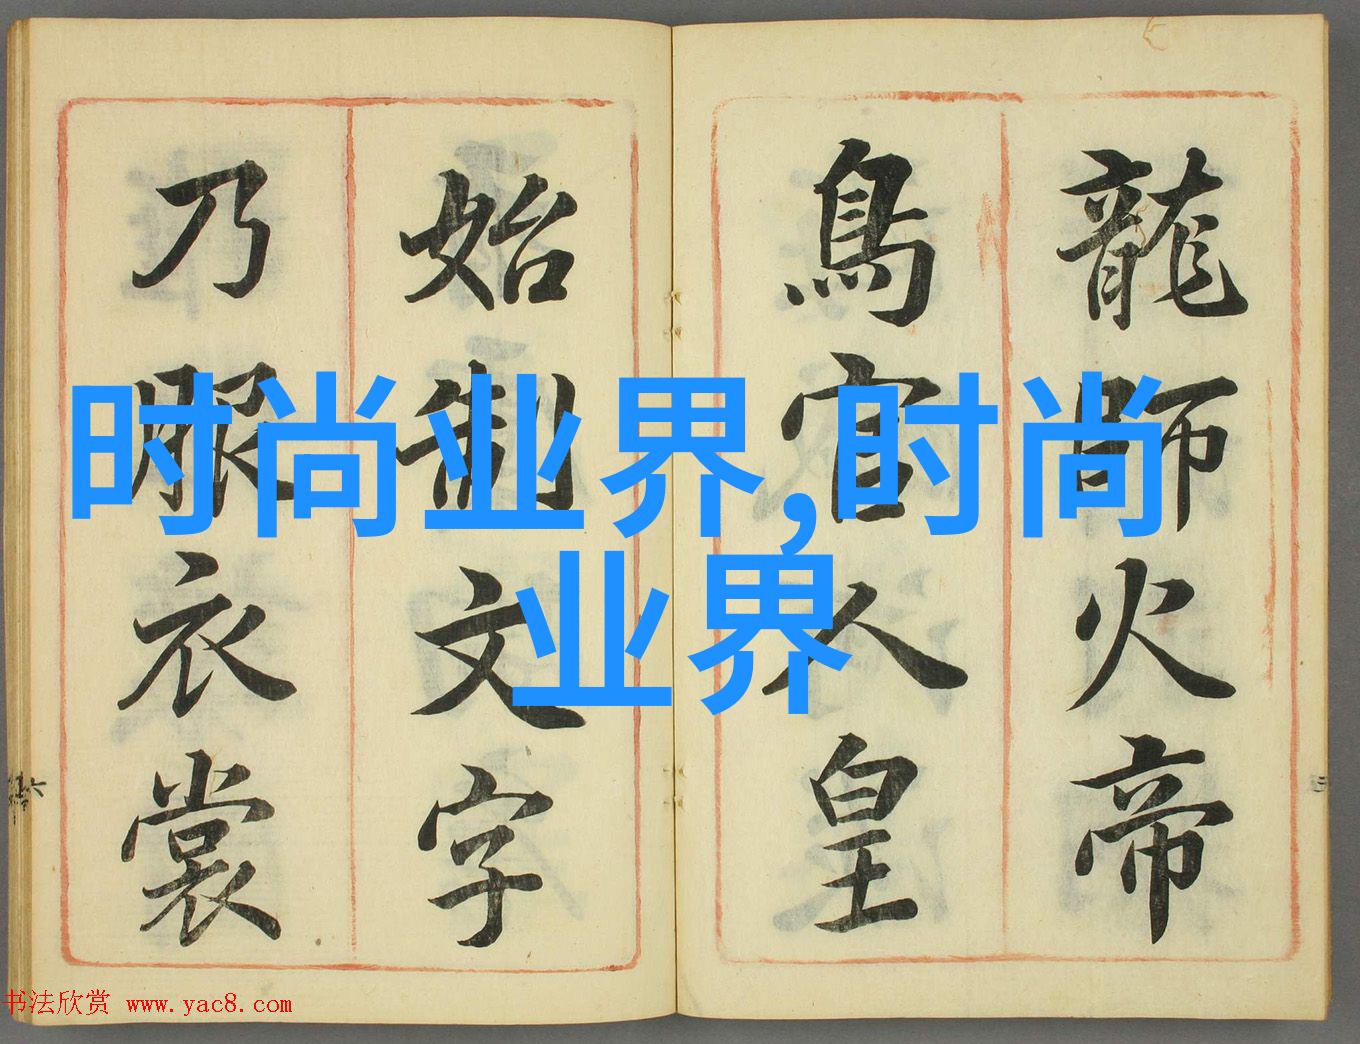 龍師火帝
鳥官人皇
始制文字
乃服衣裳
时尚业界,时尚
业界
书法欣赏 www.yac8.com